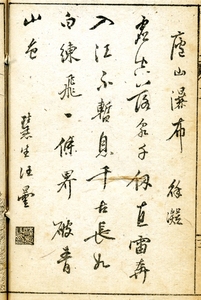 廬山瀑布　徐凝
虛空落泉千仞直雷奔
入江不暫息千古長如
白練飛一條界破青
山色
生汪